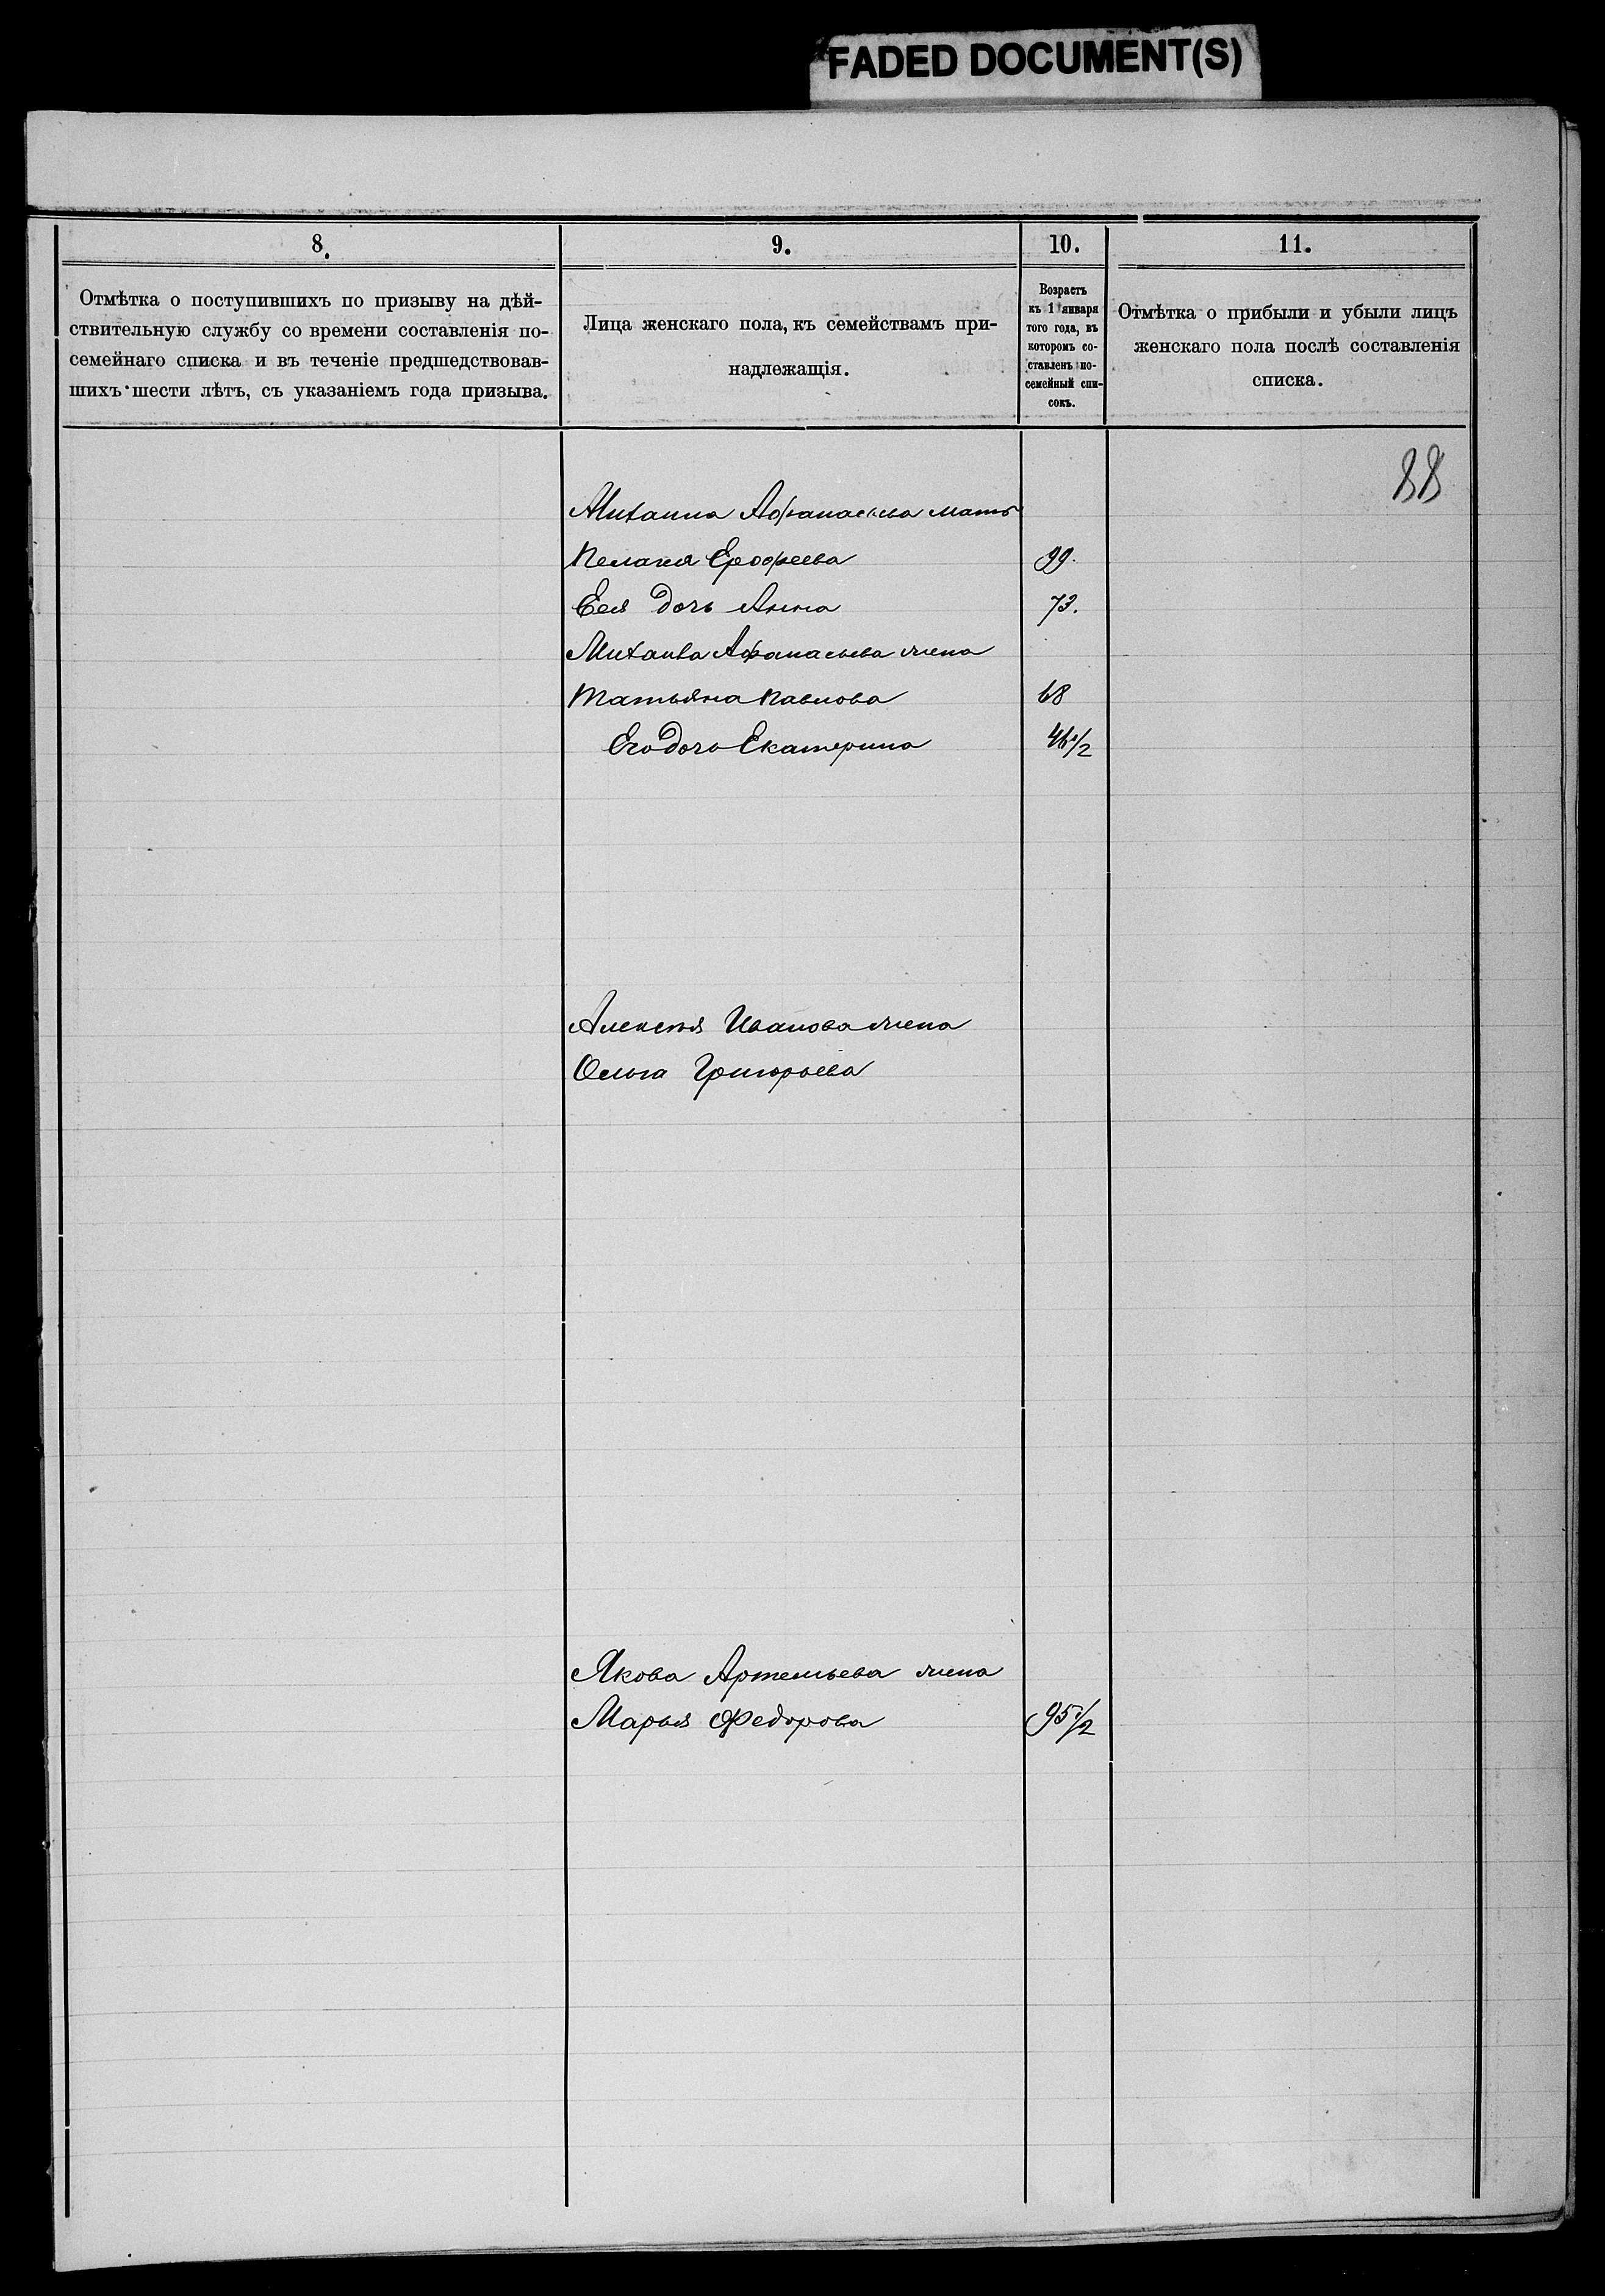 FADED DOCUMENT(S)
8.
9.
10.
11.
Отмѣтка о поступившихъ по призыву на дѣй-
ствительную службу со времени составленія по-
семейнаго списка и въ теченіе предшедствовав-
шихъ шести лѣтъ, съ указаніемъ года призыва.
Лица женскаго пола, къ семействамъ при-
надлежащія.
Возрастъ
къ 1 января
того года, въ
которомъ со-
ставленъ по-
семейный спи-
сокъ.
Отмѣтка о прибыли и убыли лицъ
женскаго пола послѣ составленія
списка.
88
Михаила Афанасьева мать
Пелагея Ерофеева 99.
Еея дочь Анна 73.
Михаила Афанасьева жена
Татьяна Павлова 68
Его дочь Екатерина 46 1/2
Алексѣя Иванова жена
Ольга Григорьева
Якова Артемьева жена
Марья Федорова 95 1/2